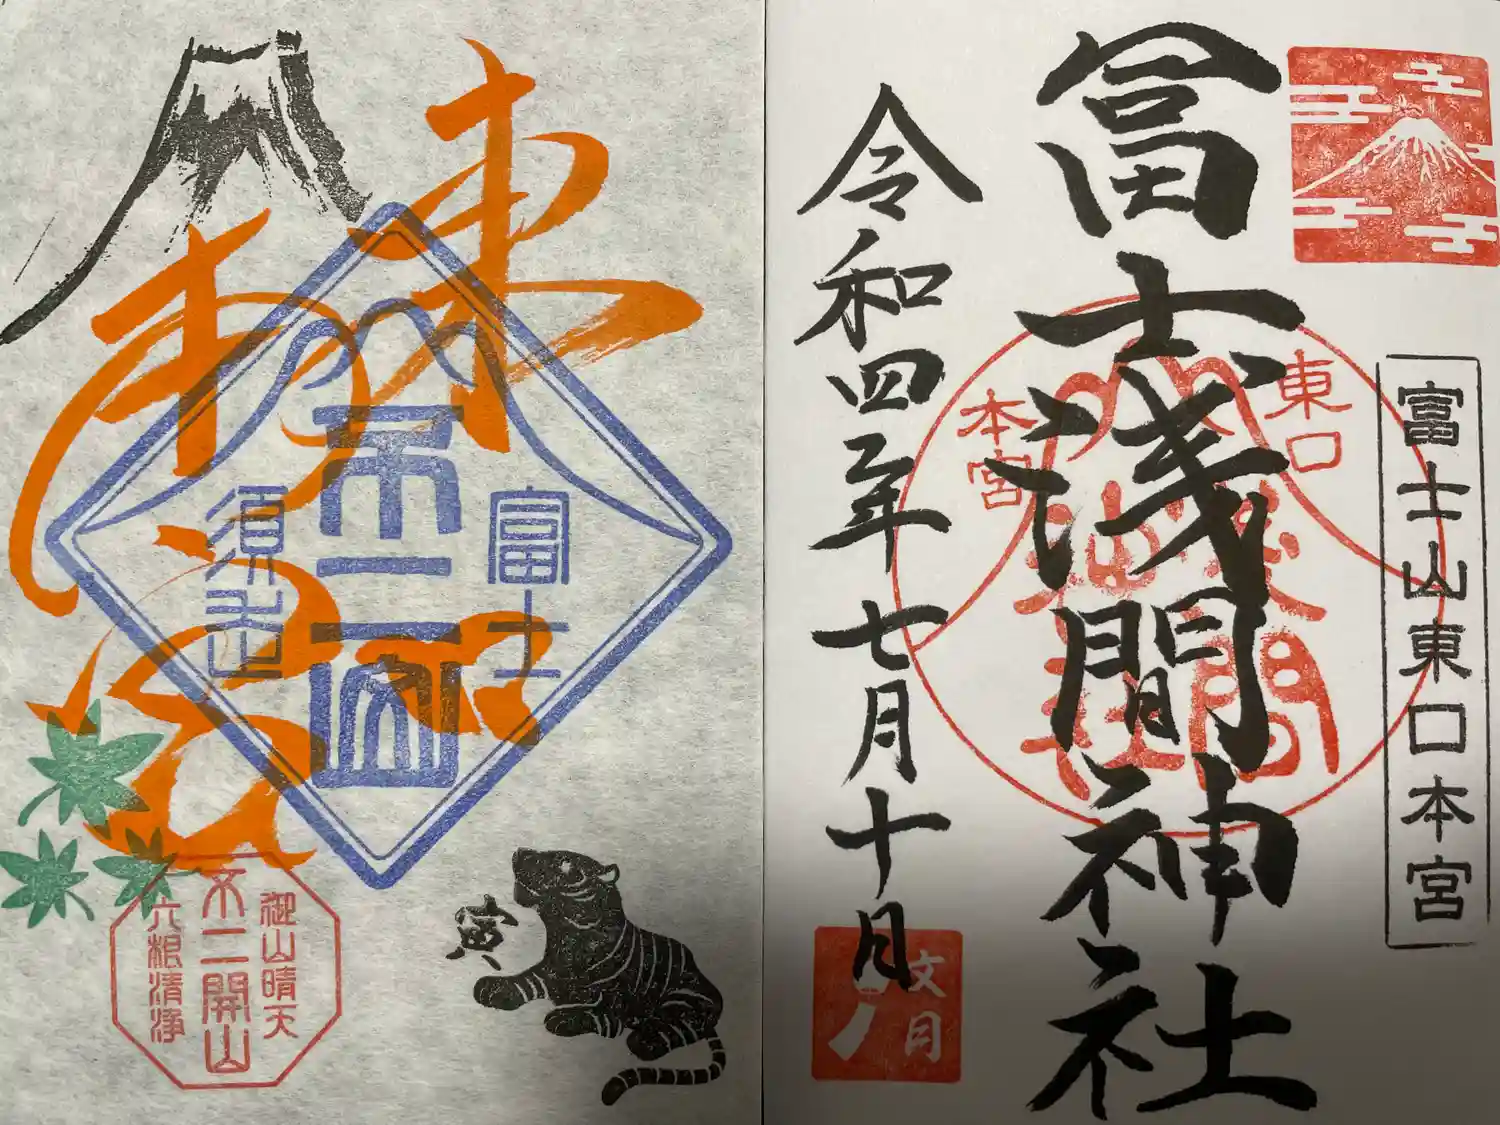 富士山東口本宮
冨士浅間神社
東口
本宮
令和四年七月十日
文月
東口
本宮
富士
不二山
須走
寅
御山晴天
不二開山
六根清浄